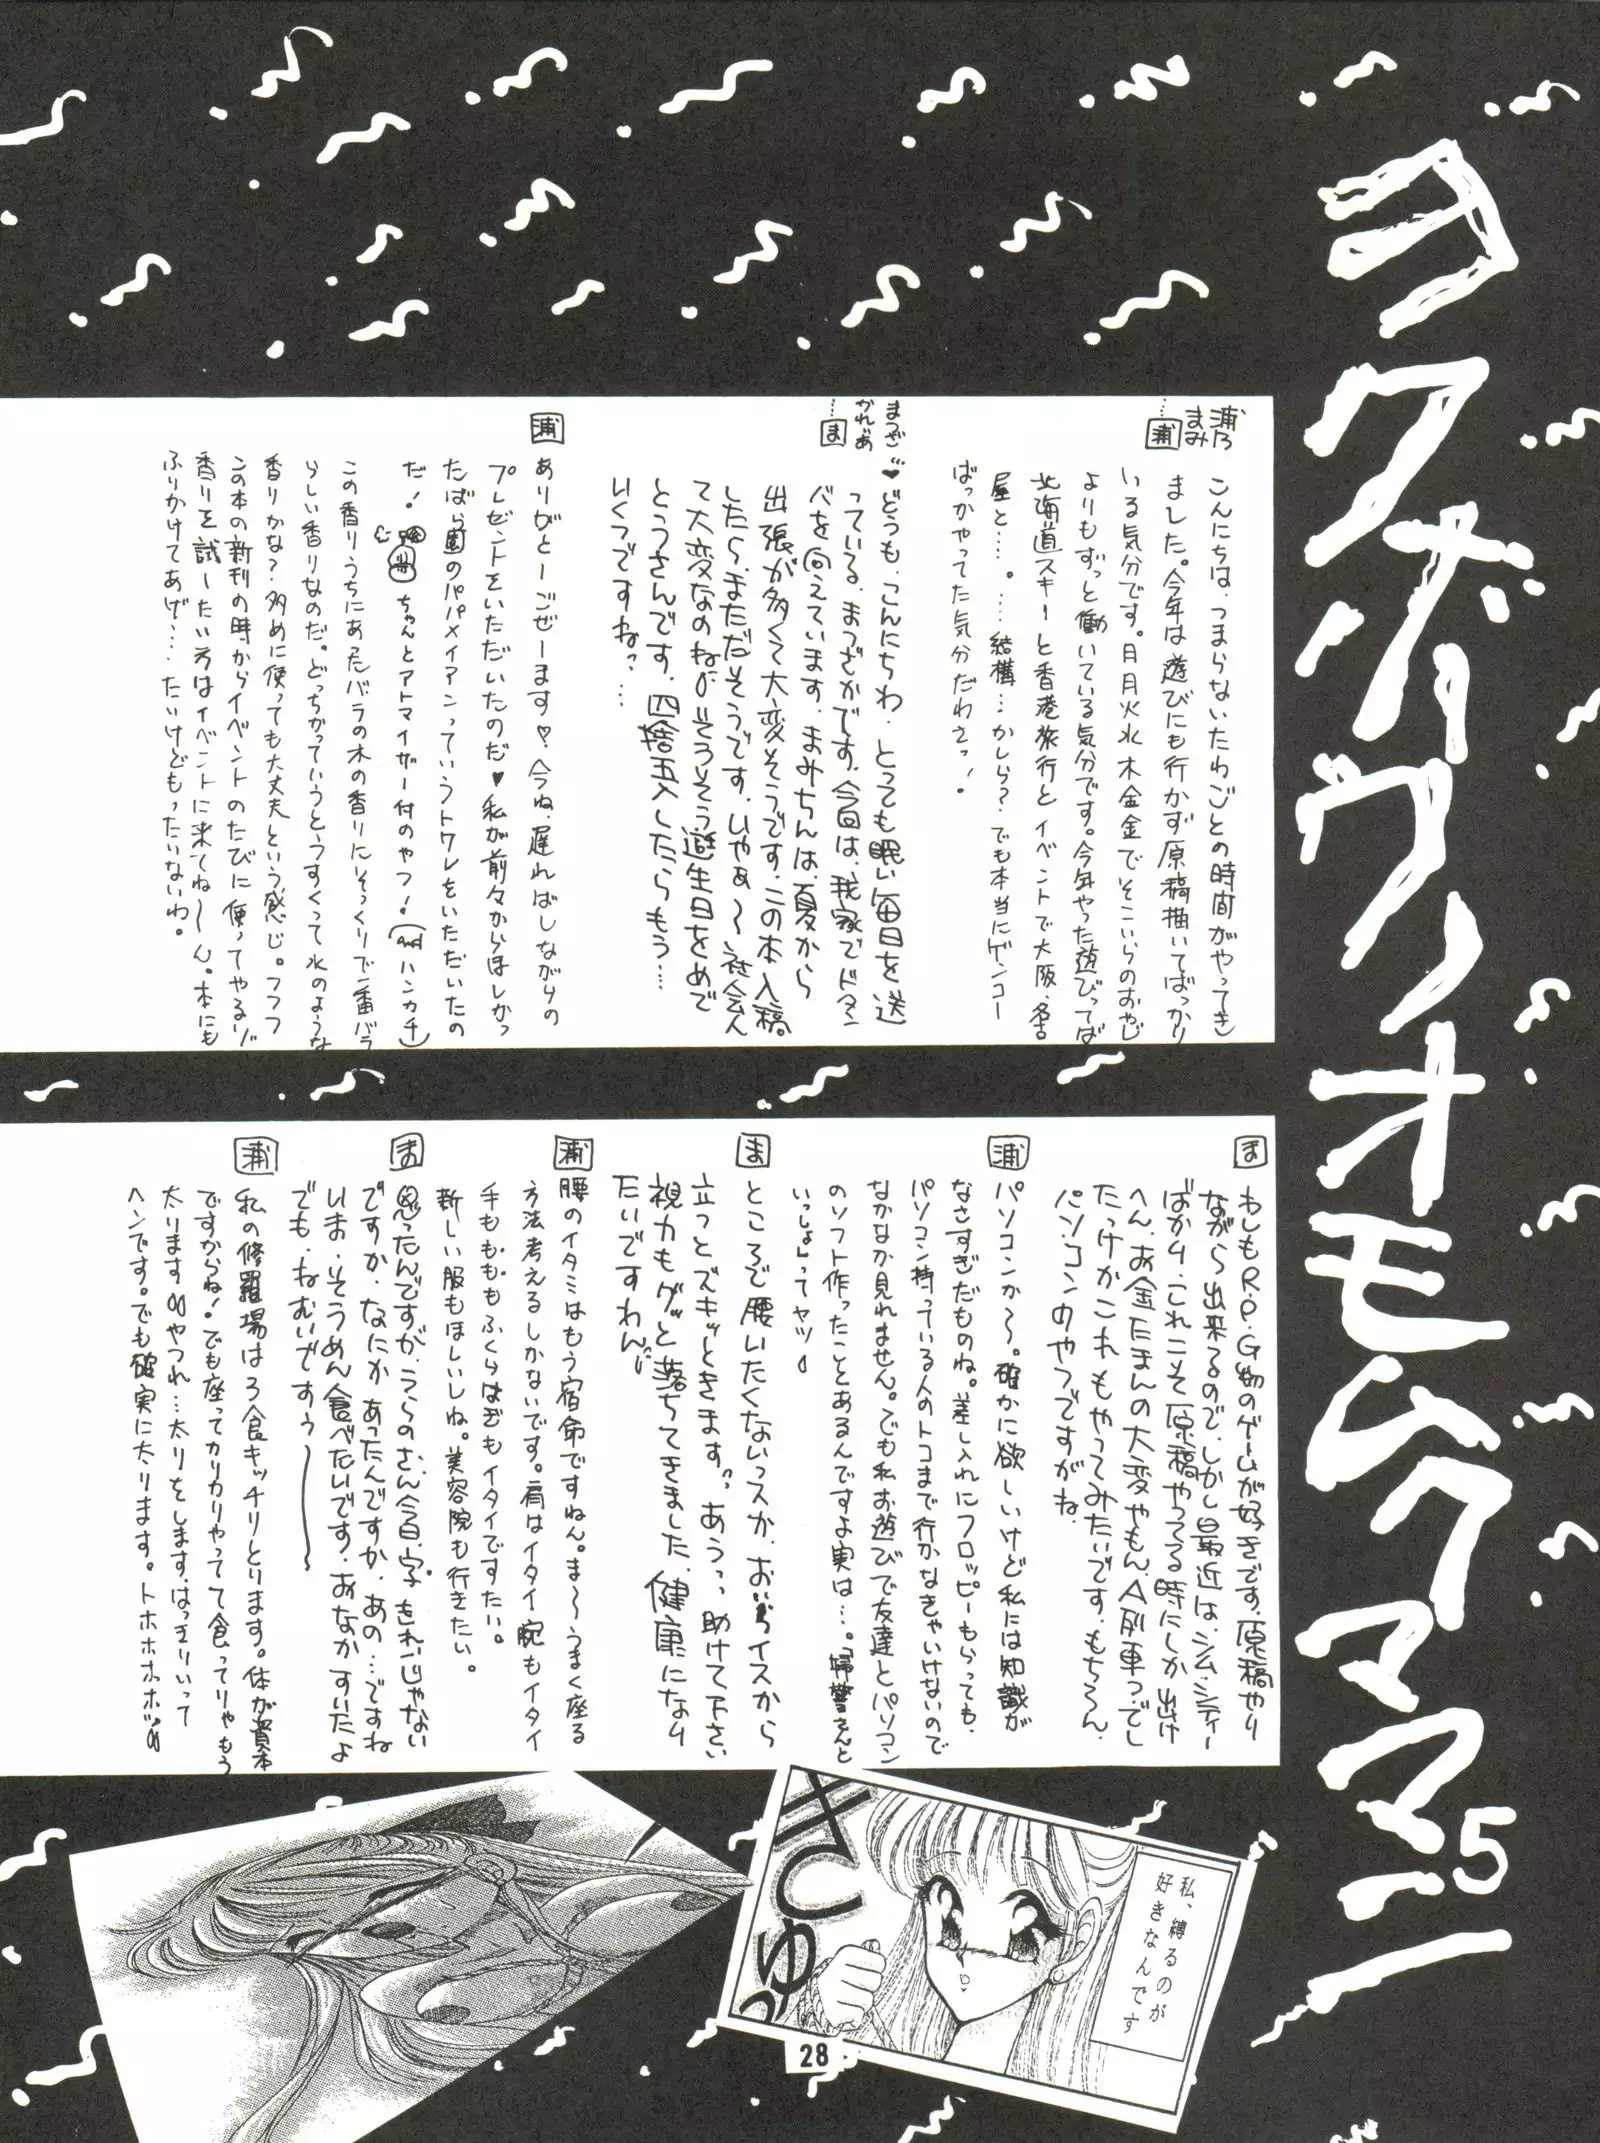 ヨクボウリオモムクママニ5
浦乃
まみ
…浦
こんにちは、つまらないたわごとの時間がやってき
ました。今年は遊びにも行かず原稿描いてばっかり
いる気分です。月月火水木金金でそこいらのおやじ
よりもずっと働いている気分です。今年やった遊びってば
北海道スキーと香港旅行とイベントで大阪、名古
屋と…。…結構…かしら?でも本当にゲンコー
ばっかやってた気分だわさっ!
まつざか
れいあ
…ま
どうも、こんにちわ、とっても眠い毎日を送
っている、まつざかです。今回は、我家でドタン
バを向えています。まみちんは、夏から
出張が多くて大変そうです。この本入稿
したら、まただそうです。ひゃあ〜社会人
て大変なのね。そろそろ誕生日をめで
とうさんです。四捨五入したらもう…
いくつですねっ…
浦
ありがとーごぜーます♡今ね、遅ればしながらの
プレゼントをいただいたのだ♥私が前々からほしかっ
たばら園のパパメイアンっていうトワレをいただいたの
だ!ちゃんとアトマイザー付のやつ!(andハンカチ)
この香りうちにあったバラの木の香りにそっくりで一番バラ
らしい香りなのだ。どっちかっていうとうすくって水のような
香りかな?多めに使っても大丈夫という感じ。フフフ
この本の新刊の時からイベントのたびに使ってやるゾ
香りを試したい方はイベントに来てね〜ん。本にも
ふりかけてあげ…たいけどもったいないわ。
ま
わしもR.P.G物のゲームが好きです。原稿やり
ながら出来るので、しかし最近は、シムシティー
ばかり、これこそ原稿やってる時にしか出せけ
へん。お金たまんの大変やもん。A列車ってでし
たっけかこれもやってみたいです。もちろん、
パソコンのやつですがね。
浦
パソコンか〜。確かに欲しいけど私には知識が
なさすぎだものね。差し入れにフロッピーもらっても、
パソコン持っている人のトコまで行かなきゃいけないので
なかなか見れません。でも私お遊びで友達とパソコン
のソフト作ったことあるんですよ実は…。「婦警さんと
いっしょ」ってヤツ
ま
ところで腰いたくないっスか、おいらイスから
立つとズキッときます。あうっっ助けて下さい
視力もグッと落ちてきました、健康になり
たいですわん
浦
腰のイタミはもう宿命ですねん。ま〜うまく座る
方法考えるしかないです。肩はイタイ腕もイタイ
手もももふくらはぎもイタイですたい。
新しい服もほしいしね。美容院も行きたい。
ま
思ったんですが、うらのさん今日、字、きれいじゃない
ですか、なにかあったんですか、あの…ですね
いま、そうめん食べたいです、おなかすいたよ
でも、ねむいですぅ〜
浦
私の修羅場は3食キッチリとります。体が資本
ですからね!でも座ってカリカリやってて食ってりゃもう
太りますやつれ…太りをします、はっきりいって
ヘンです。でも確実に太ります。トホホホホ
きゅっ
私、縛るのが
好きなんです
28